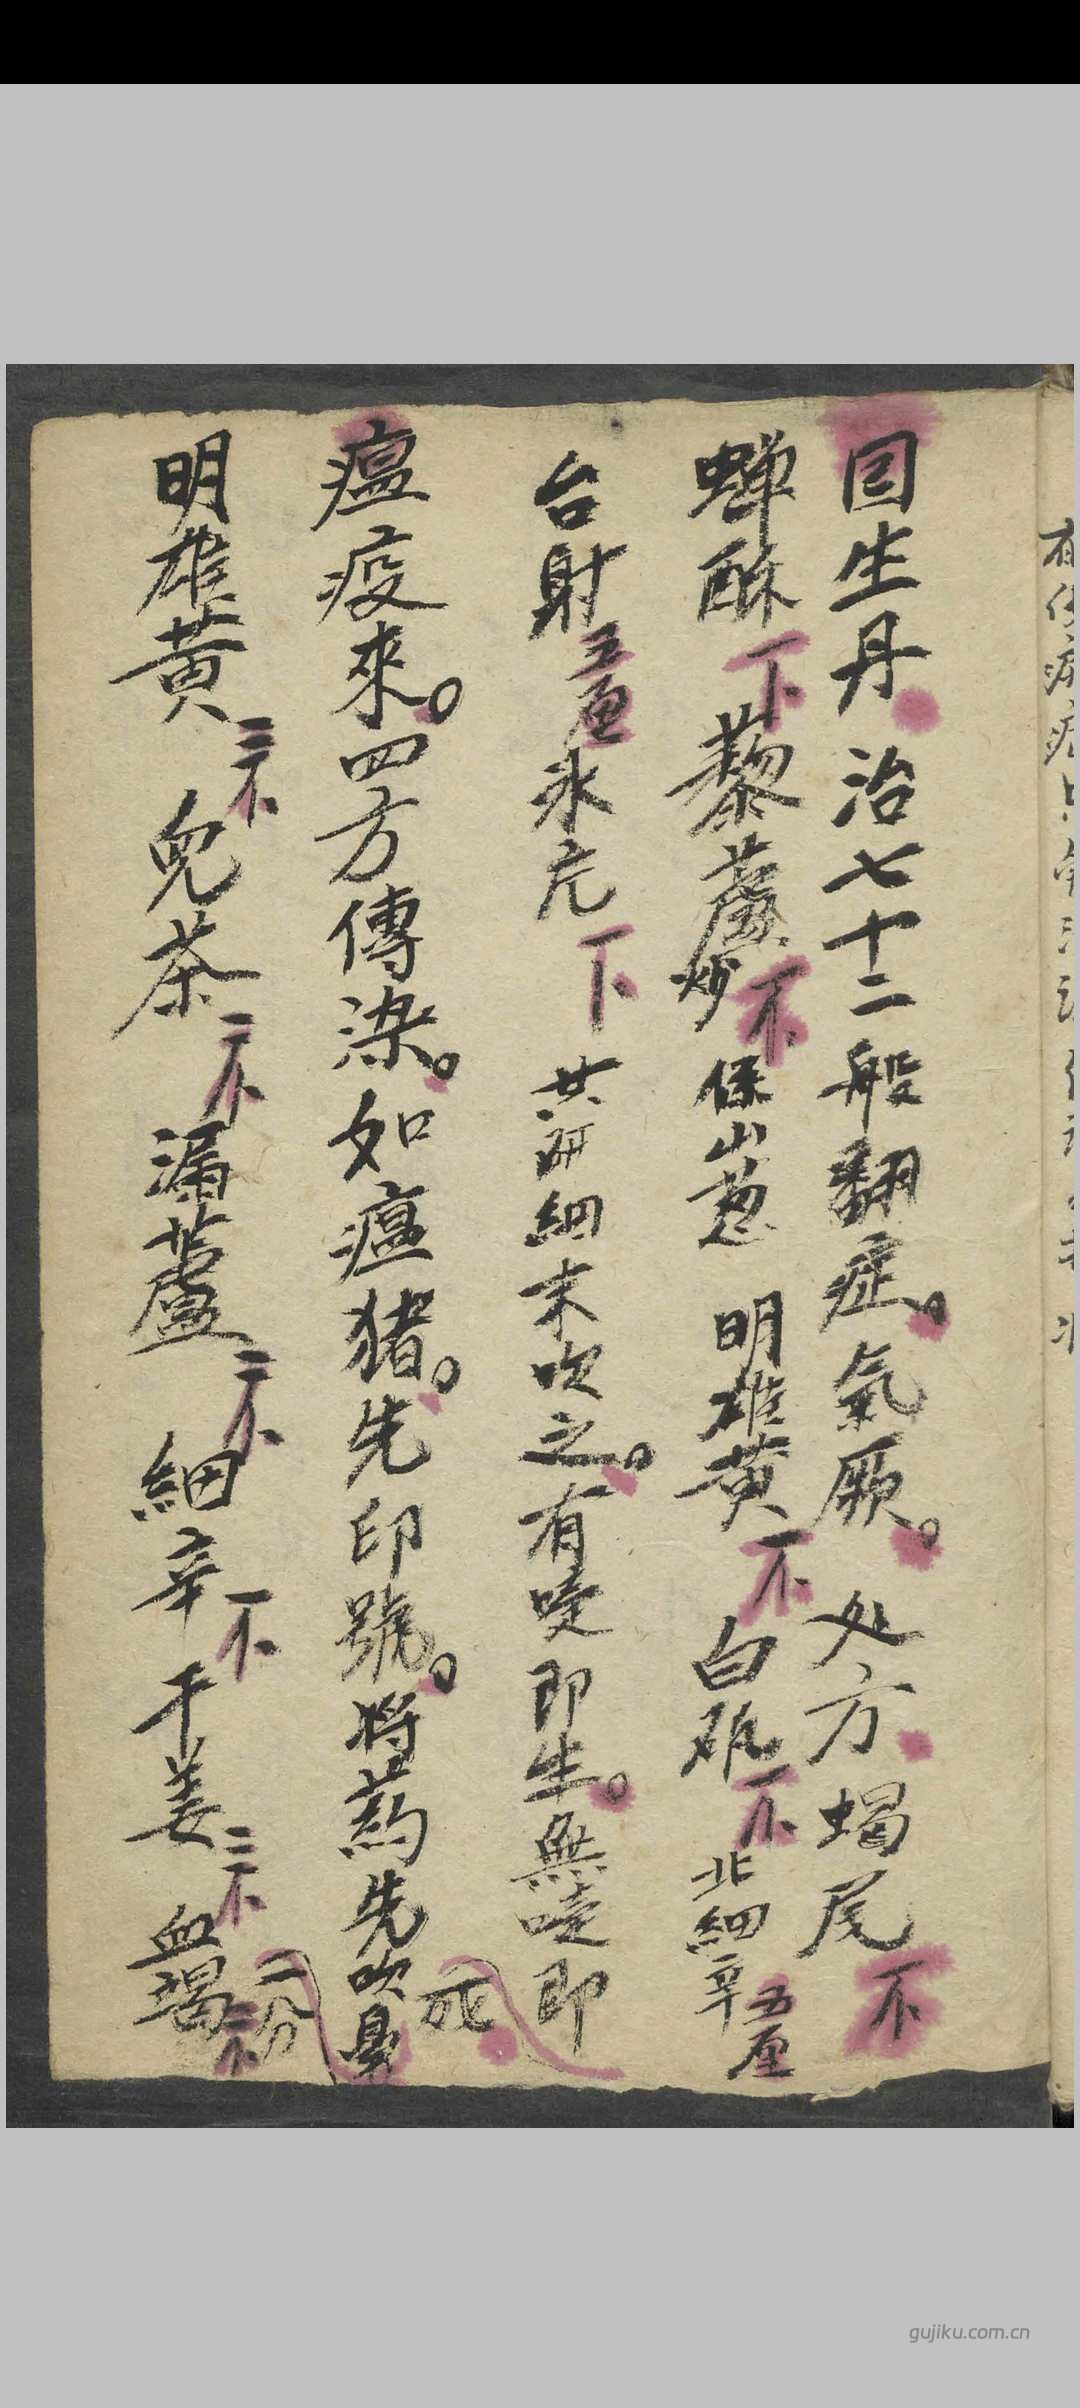 囬生丹 治七十二般翻症。氣厥。 处方 蝎尾不
蟬酥下 藜蘆炒不 保山葱 明雄黄不 白矾不 北細辛五厘
台射五厘 氷片下 共研細末吹之。有嚏即生。無嚏即
死
瘟疫來。四方傳染。如瘟猪。先印號。将药先吹鼻
明雄黄三不 兒茶二不 漏蘆二不 細辛不 干姜三不 血竭
二分
gujiku.com.cn